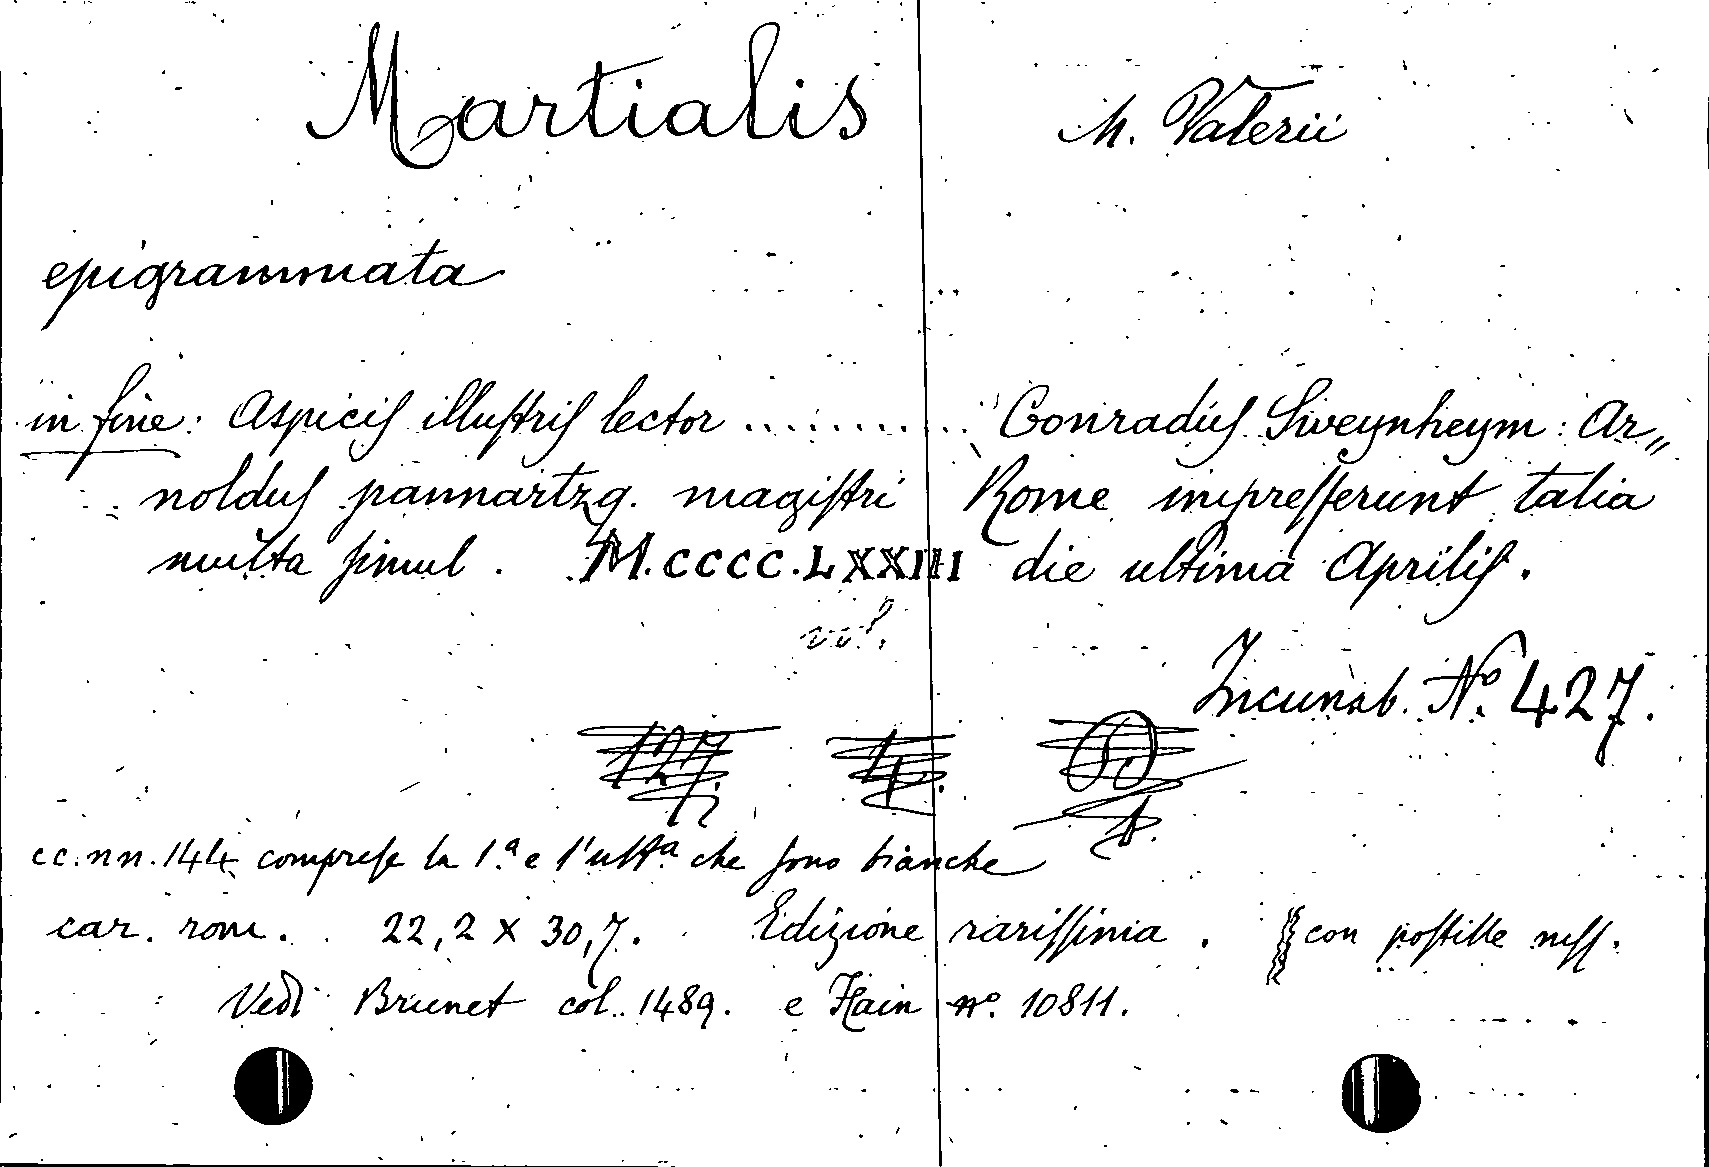 Martialis M. Valerii
epigrammata
in fine: Aspiciſ illuſtriſ lector .......... Conradúſ Sweynheym: Ar„
noldúſ pannartzq. magiſtri Rome impreſſerunt talia
multa ſimul. M.CCCC.LXXIII die ultima Apriliſ.
vol.
Incunab. No. 427.
127. 4.
cc. nn. 144 compreſe la 1.a e l'ultª che ſono bianche
car. rom. 22,2 X 30,7. Edizione rariſſima. con poſtille mſſ.
Vedi Brunet col. 1489. e Hain no. 10811.